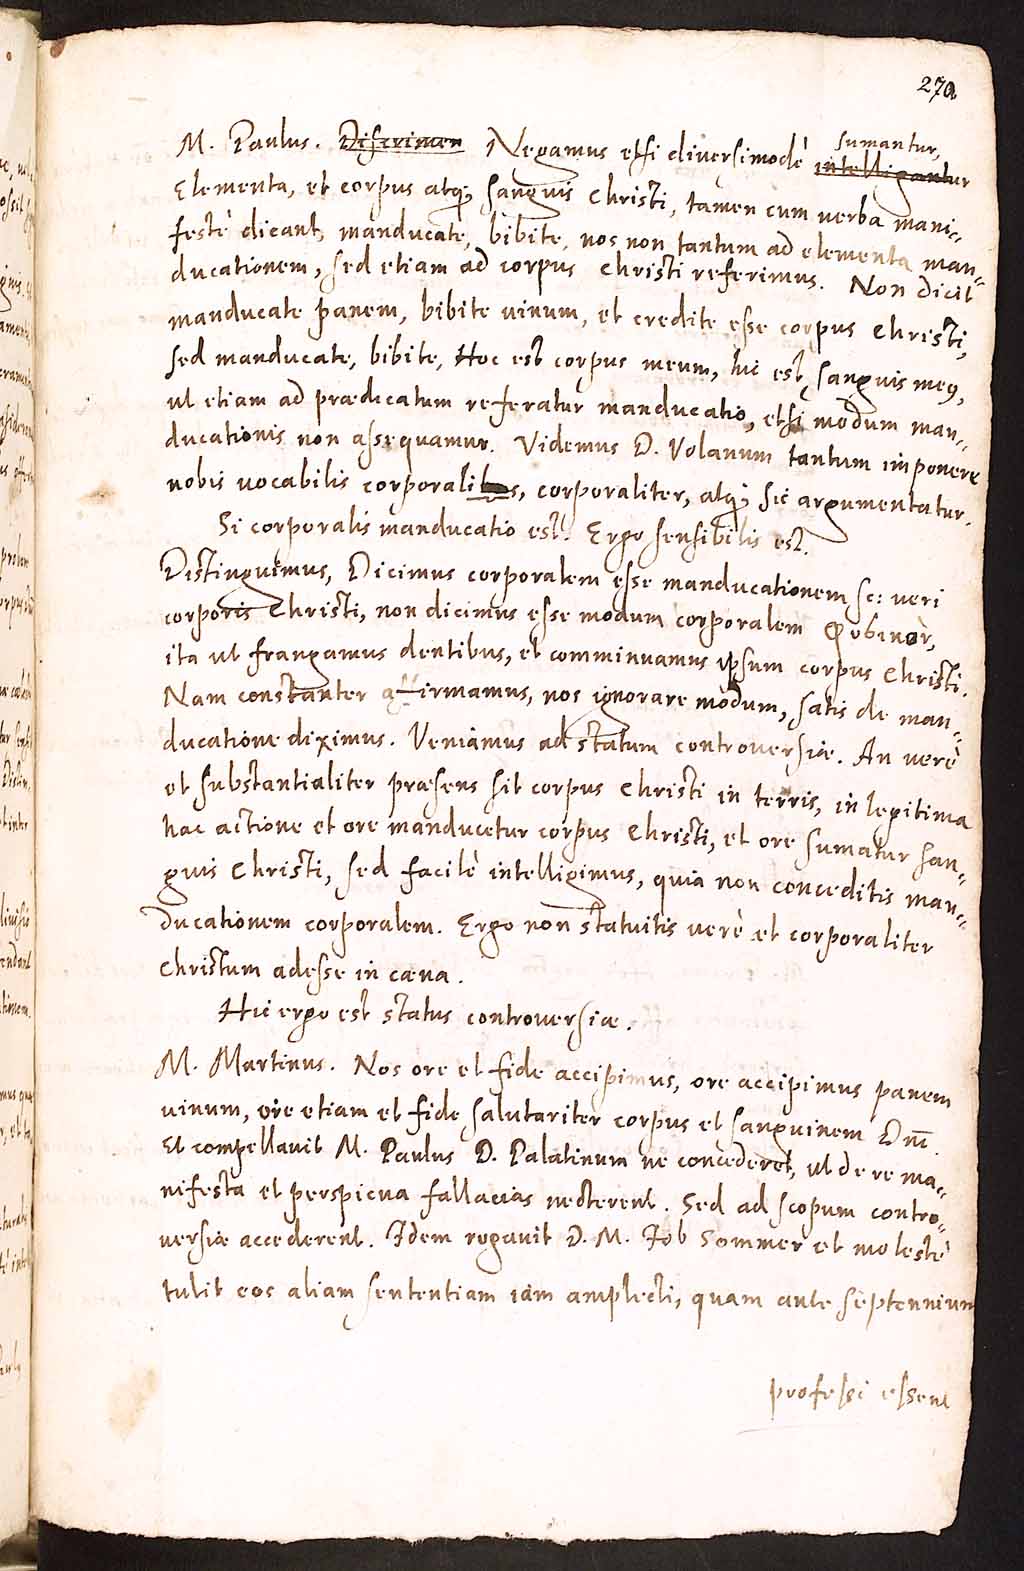 270
M. Paulus. Discrimen Negamus etsi diversimodè sumantur,
intelligantur
Elementa, et corpus atq; sanguis Christi, tamen cum verba mani-
festè dicant, manducate, bibite, nos non tantum ad elementa man-
ducationem, sed etiam ad corpus Christi referimus. Non dicit
manducate panem, bibite vinum, et credite esse corpus Christi,
sed manducate, bibite, Hoc est corpus meum, hic est sanguis meus,
ut etiam ad prædicatum referatur manducatio, etsi modum man-
ducationis non assequamur. Videmus D. Volanum tantum imponere
nobis vocabilis corporalis, corporaliter, atq; sic argumentatur.
Si corporalis manducatio est. Ergo sensibilis est.
Distinguimus, Dicimus corporalem esse manducationem sc: veri
corporis Christi, non dicimus esse modum corporalem
ita ut frangamus dentibus, et comminuamus ipsum corpus Christi.
Nam constanter affirmamus, nos ignorare modum, satis de man-
ducatione diximus. Veniamus ad statum controversiæ. An verè
et substantialiter præsens sit corpus Christi in terris, in legitima
hac actione et ore manducetur corpus Christi, et ore sumatur san-
guis Christi, sed facilè intelligimus, quia non conceditis man-
ducationem corporalem. Ergo non statuitis verè et corporaliter
Christum adesse in cæna.
Hic ergo est status controversiæ.
M. Martinus. Nos ore et fide accipimus, ore accipimus panem
vinum, ore etiam et fide salutariter corpus et sanguinem Dni.
Et compellavit M. Paulus D. Palatinum ne concederet, ut de re ma-
nifesta et perspicua fallacias necterent. Sed ad scopum contro-
versiæ accederent. Idem rogavit D. M. Iob Sommer et molestè
tulit eos aliam sententiam iàm amplecti, quam ante septennium
professi essent